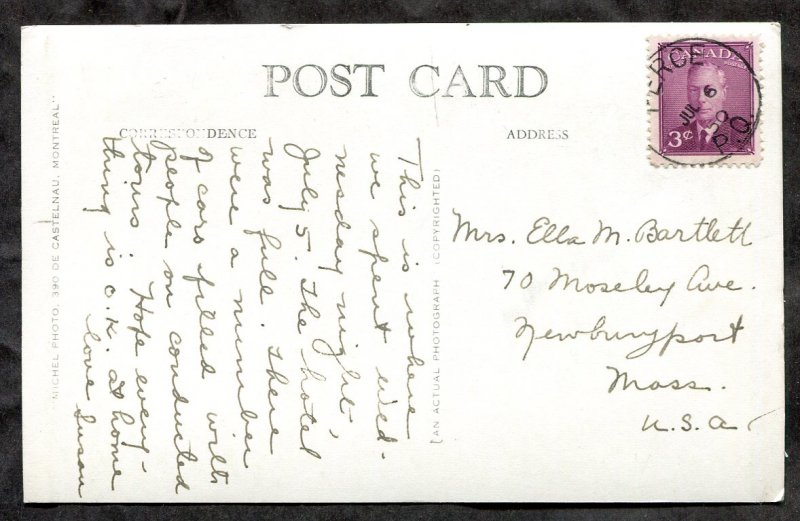 POST CARD
CORRESPONDENCE
ADDRESS
This is where
we spent wed-
nesday night,
July 5. The hotel
was full. There
were a number
of cars filled with
people on conducted
tours. Hope every-
thing is o.k. at home
love Susan
MICHEL PHOTO, 390 DE CASTELNAU, MONTREAL
(AN ACTUAL PHOTOGRAPH (COPYRIGHTED)
CANADA
POSTES POSTAGE
3¢
PERCE
JUL 6
50
P.Q.
Mrs. Ella M. Bartlett
70 Moseley Ave.
Newburyport
Mass.
U.S.A.